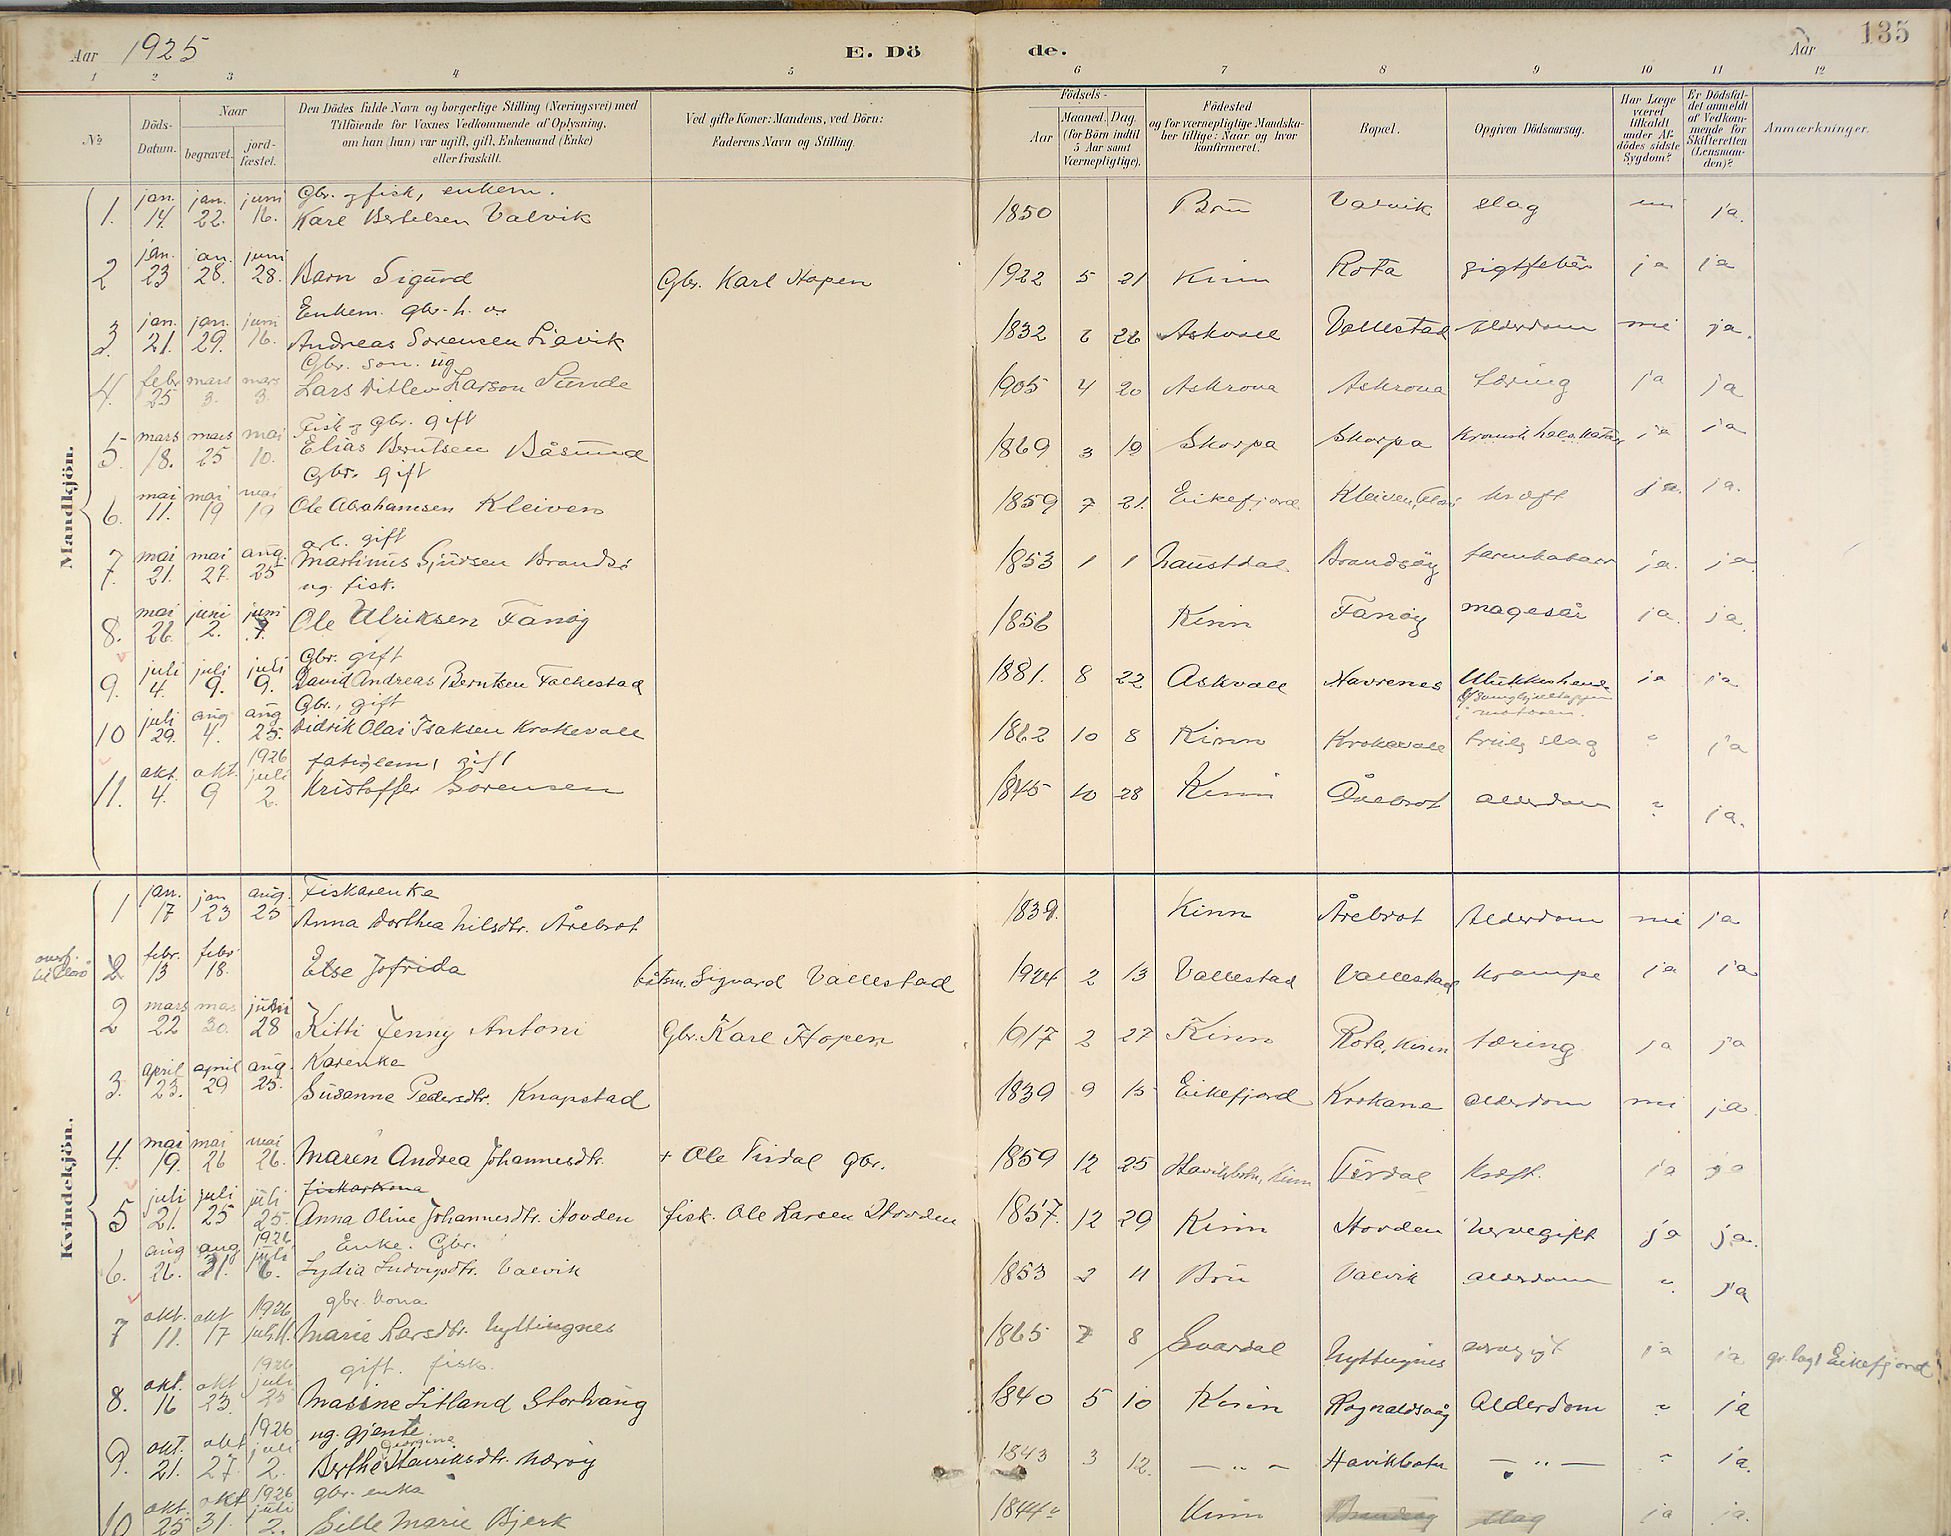 Aar 1925 E. Döde. Aar 135
1 2 3 4 5 6 7 8 9 10 11 12
No
Döds-Datum.
Naar
begravet.
jord-fæstet.
Den Dödes fulde Navn og borgerlige Stilling (Næringsvei) med
Tilföiende for Voxnes Vedkommende af Oplysning,
om han (hun) var ugift, gift, Enkemand (Enke)
eller fraskilt.
Ved gifte Koner: Mandens, ved Börn:
Faderens Navn og Stilling.
Födsels-
Aar
Maaned. Dag.
(for Börn indtil
5 Aar samt
Værnepligtige).
Födested
og for værnepligtige Mandska-
ber tillige: Naar og hvor
konfirmeret.
Bopæl.
Opgiven Dödsaarsag.
Har Læge
været
tilkaldt
under Af-
dödes sidste
Sygdom?
Er Dödsfal-
det anmeldt
af Vedkom-
mende for
Skifteretten
(Lensman-
den)?
Anmærkninger.
Mandkjön.
jan. jan. juni Gbr. og fisk, enkem.
1. 14. 22. 16. Karl Bertelsen Valvik 1850 Bru Valvik slag nei ja.
jan. jan. juni
2 23 28. 28. Barn Sigurd Gbr. Karl Hopen 1922 5 21 Kinn Rota gigtfeber ja ja
jan. jan. juni Enkem. gbr.
3. 21. 29. 16. Andreas Sørensen Liavik 1832 6 26 Askvoll Vallestad alderdom nei ja.
febr mars mars Gbr. son. ug
4. 25 3. 3. Lars Ditlev Larson Sunde 1905 4 20 Askrova Askrova tæring ja ja
mars mars mai Fisk og gbr. gift
5. 18. 25 10. Elias Berntsen Båsund 1869 3 19 Skorpa Skorpa Kronisk ja ja
mai mai mai Gbr. gift
6. 11. 19 19 Ole Abrahamsen Kleiven 1859 7 21. Eikefjord Kleiven, kræft ja. ja.
mai mai aug. arb. gift
7. 21. 27. 25 Martinus Gjursen Brandsø 1853 1 1 Naustdal Brandsøy ja. ja.
mai juni juni ug. fisk.
8. 26. 2. 7. Ole Ulriksen Fanøy 1856 Kinn Fanøy magesår ja. ja.
juli juli juli Gbr. gift
9. 4. 9. 9. David Andreas Berntsen Falkestad 1881. 8 22 Askvoll Havrenes Ulukkeshende ja ja
i motoren.
juli aug aug Gbr., gift
10 29. 4. 25. Didrik Olai Isaksen Krokevoll 1862 10 8 Kinn Krokevoll truleg slag " ja
okt. okt. 1926 juli fatiglem, gift
11. 4. 9 2. Kristoffer Sørensen 1845 10 28 Kinn Årebrot alderdom " ja.
Kvindekjön.
jan. jan aug. Fiskarenka
1 17 23 25 Anna Dorthea Nilsdtr. Årebrot 1839. Kinn Årebrot Alderdom nei ja
overf. til Florø
febr. febr
2 13 18. Else Jofrida Sigvard Vallestad 1924 2 13 Vallestad Vallestad krampe ja ja
mars mars juni
2 22 30. 28 Kitti Jenny Antoni Gbr. Karl Hopen 1917 2 27 Kinn Rota, Kinn tæring ja ja
april april aug. Karenka
3. 23. 29 25. Susanne Pedersdtr. Knapstad 1839 9 15 Eikefjord Krokane alderdom nei ja.
mai mai mai
4. 19. 26 26. Maren Andrea Johannesdtr. + Ole Tirdal gbr. 1859 12 25 Havikbotn, Kinn Tirdal kræft. ja ja
juli juli juli fiskarkona
5 21. 25 25. Anna Oline Johannesdtr. Hovden fisk. Ole Larsen Hovden 1857. 12 29 Kinn Hovden nervegikt ja ja.
aug aug 1926 juli Enke. Gbr.
6. 26. 31. 6. Lydia Ludvigsdtr. Valvik 1853 2 11 Bru Valvik alderdom " ja
okt. okt 1926 juli gbr. kona
7 11. 17 11. Marie Larsdtr. Nyttingnes 1865 7 8 Svardal Nyttingnes ja ja gr. lagt Eikefjord
okt. okt 1926 juli gift. fisk.
8. 16 23. 25 Masine Litland Storhaug 1840 5 10 Kinn Rognaldsvåg Alderdom " ja
okt. okt 1926 juli ug. gjente
Georgine
9. 21. 27. 2. Berthe Hendriksdtr. Nærøy 1843 3 12. — " — Havikbotn — " — " ja.
okt. okt 1926 juli gbr. enka
10 25 31. 2. Sille Marie Bjerk 1844 Kinn Brandsøy slag ja ja.